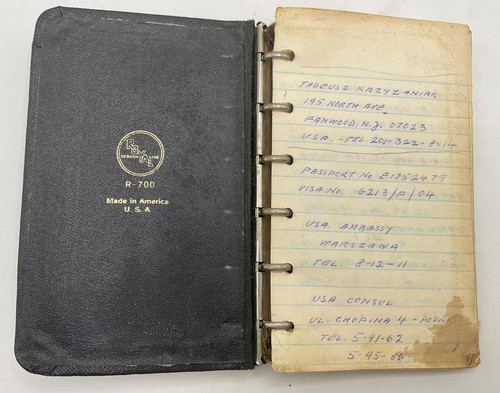 VERNON LINE
R-700
Made in America
U. S. A.
TADEUSZ KRZYZANIAK
195 NORTH AVE.
FANWOOD, N.J. 07023
USA. -TEL 201-322-8414
PASSPORT No E1252479
VISA No. 6213/P/04
USA AMBASSY
WARSZAWA
TEL. 8-12-11
USA CONSUL
UL. CHOPINA 4 -
TEL. 5-91-62
5-95-86